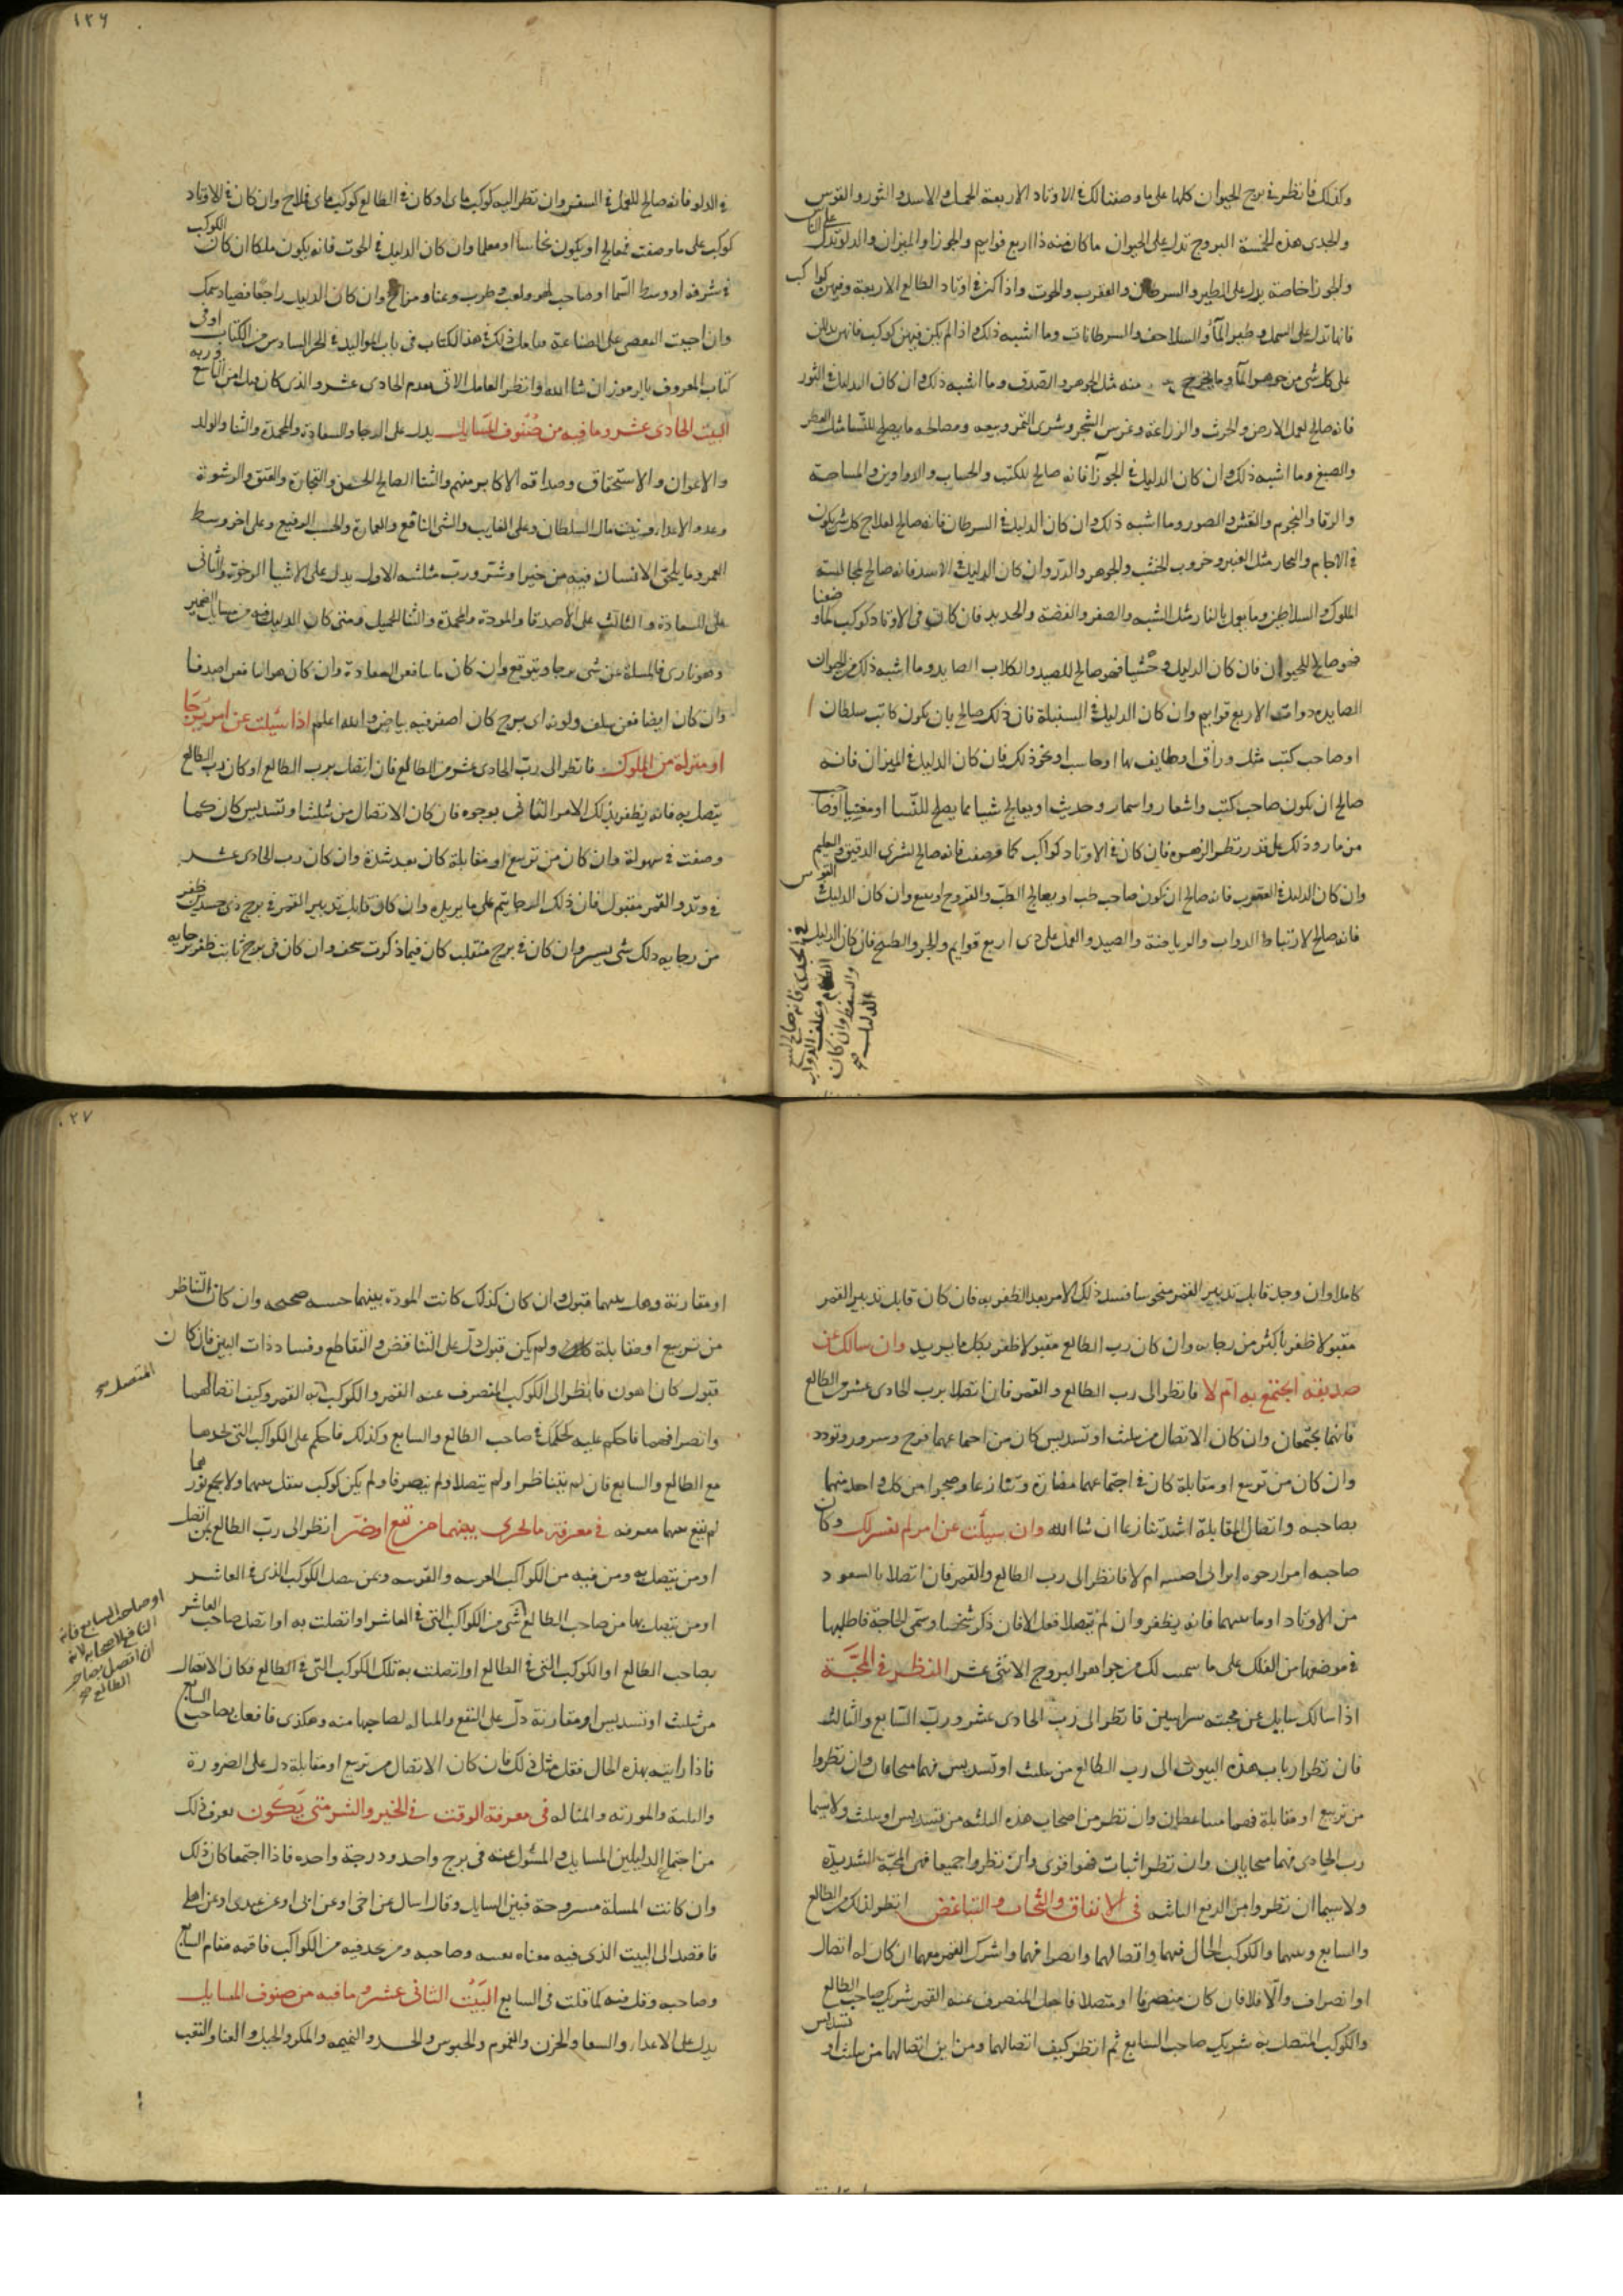 وكذلك فانظر في برج الحيوان كلها على ما وصفنا لك في الاوتاد الاربعة الحمل والاسد والثور والقوس
والجدى هذه الخمسة البروج تدل على الحيوان ما كان منه ذا اربع قوايم والجوزا والميزان والدلو تدل على الناس
والجوزا خاصة يدل على الطير والسرطان والعقرب والحوت واذا كن في اوتاد الطالع الاربعة وفيهن كواكب
فانها تدل على السمك وطير المآء والسلاحف والسرطانات وما اشبه ذلك واذا لم يكن فيهن كوكب فانهن يدللن
على كل شى من جوهر المآء وما يخرج منه مثل الجوهر والصدف وما اشبه ذلك وان كان الدليل في الثور
فانه صالح لعمل الارض والحرث والزراعة وغرس الشجر وشرى التمر وبيعه ومصالحه ما يصلح للنسا مثل العطر
والصبغ وما اشبه ذلك وان كان الدليل في الجوزآ فانه صالح للكتب والحساب والدواوين والمساحة
والرقا والنجوم والنقش والصور وما اشبه ذلك وان كان الدليل في السرطان فانه صالح لعلاج كل شى يكون
في الاجام والبحار مثل العنبر وخروب الخشب والجوهر والدر وان كان الدليل في الاسد فانه صالح لمجالسة
الملوك والسلاطين وما يعمل بالنار مثل الشبه والصفر والفضة والحديد فان كان في الاوتاد كوكب كما وضعنا
فهو صالح للحيوان فان كان الدليل وحشيا فهو صالح للصيد والكلاب الصايد وما اشبه ذلك من الحيوان
الصايده دوات الاربع قوايم وان كان الدليل في السنبلة فان ذلك صالح بان يكون كاتب سلطان
او صاحب كتب مثل وراق او طايف بها او حاسب او نحو ذلك فان كان الدليل في الميزان فانه
صالح ان يكون صاحب كتب واشعار واسمار وحديث او يعالج شيا مما يصلح للنسا او مغنيا او صاحب
من مار وذلك على قدر نظر الزهره فان كان في الاوتاد كواكب كما وصفت فانه صالح لشرى الدقيق والعليم
وان كان الدليل في العقرب فانه صالح ان يكون صاحب طب او يعالج الطب والقروح او بيع وان كان الدليل في القوس
فانه صالح لارتباط الدواب والرياضة والصيد والعمل على دى اربع قوايم والجر والطبخ فان كان الدليل
في الجدى فانه صالح لبيع
الطعام وعلف الدواب
والسفر وان كان
الدليل صح
١٢٦
في الدلو فانه صالح للعمل في السفن وان نظر اليه كوكب ماى او كان في الطالع كوكب ماى فلاح وان كان في الاوتاد
كوكب على ما وصفت فمعالج او يكون نخاسا او معلما وان كان الدليل في الحوت فانه يكون ملكا ان كان الكوكب
في شرفه او وسط السما او صاحب لهو ولعب وطرب وغنا ومزاح وان كان الدليل راجعا فصياد سمك
وان احببت الفحص على الصناعة فذلك في هذا الكتاب في باب المواليد في الجز السادس من الكتاب او في
كتاب المعروف بابرموز ان شا الله وانظر العامل الاتى بعدم الحادى عشر والذى كان قبله من التاسع وربه
البيت الحادى عشر وما فيه من صنوف المسايل يدل على الرجا والسعادة والمحمدة والثنا والولد
والاعوان والاستحقاق وصداقه الاكابر منهم والثنا الصالح الحسن والتجارة والعتق والرشوة
وعدو الاعداء وبيت مال السلطان وعلى الغايب والشى النافع والعمارة والحسب الرفيع وعلى اخر وسط
العمر وما يلحق الانسان فيه من خير او شر ورب مثلثته الاول يدل على الاشيا الرخوة والثانى
على السعادة والثالث على الاصدقا والمودة والمحمدة والثنا الجميل ومتى كان الدليل فيه من مسايل الضمير
وهو نارى فالمسلة عن شى يرجا ويتوقع وان كان مايا فعن السعادة وان كان هوائيا فعن اصدقا
وان كان ارضيا فعن سلف ولونه اى برج كان اصفر فيه بياض والله اعلم اذا سئلت عن امر يرجا
او منزلة من الملوك فانظر الى رب الحادى عشر من الطالع فان اتصل برب الطالع او كان رب الطالع
يتصل به فانه يظفر بذلك الامر الثانى بوجوه فان كان الاتصال من تثليث او تسديس كان كما
وصفت في سهولة وان كان من تربيع او مقابلة كان بعد شدة وان كان رب الحادى عشر
في وتد والقمر مقبول فان ذلك الرجا يتم على ما يريده وان كان قابل تدبير القمر في برج ذى جسدين ظفر
من رجايه ذلك شى يسير وان كان في برج منقلب كان فيما ذكرت سخف وان كان في برج ثابت ظفر برجايه
كاملا وان وجد قابل تدبير القمر منحوسا فسد ذلك الامر بعد الظفر به فان كان قابل تدبير القمر
مقبولا ظفر باكثر من رجايه وان كان رب الطالع مقبولا ظفر بكل ما يريد وان سالك عن
صديقه ايجتمع به ام لا فانظر الى رب الطالع والقمر فان اتصلا برب الحادى عشر من الطالع
فانهما يجتمعان وان كان الاتصال من تثليث او تسديس كان من اجتماعهما فرح وسرور وتودد
وان كان من تربيع او مقابلة كان في اجتماعهما مضارة وتنازعا وضجرا من كل واحد منهما
بصاحبه واتصال المقابلة اشد تنازعا ان شا الله وان سيلت عن امر لم يفسر لك وكان
صاحبه امرا رجوه ام لا فانظر الى رب الطالع والقمر فان اتصلا بالسعود
من الاوتاد او ما يليها فانه يظفر وان لم يتصلا فقل لا فان ذكر شخصا وسمى الحاجة فاطلبها
في موضعها من الفلك على ما سميت لك من جواهر البروج الاثنى عشر النظر في المحبة
اذا سالك سايل عن محبته بين اثنين فانظر الى رب الحادى عشر ورب السابع والثالث
فان نظر ارباب هذه البيوت الى رب الطالع من تثليث او تسديس فهما متحابان وان نظروا
من تربيع او مقابلة فهما متباغضان وان نظر من اصحاب هذه الثلثه من تسديس او تثليث ولا سيما
رب الحادى فهما متحابان وان نظر اثبات فهو اقوى وان نظروا جميعا فهى المحبة الشديدة
ولا سيما ان نظروا من الربع الناشه في الاتفاق والتحاب والتباغض انظر لذلك من الطالع
والسابع وربيهما والكوكب الحال فيهما واتصالهما وانصرافهما واشرك القمر معهما ان كان له اتصال
او انصراف والا فلا فان كان منصرفا او متصلا فاجعل المنصرف عنه القمر شريك صاحب الطالع
والكوكب المتصل به شريك صاحب السابع ثم انظر كيف اتصالهما ومن اين اتصالهما من تثليث او تسديس
١٢٧
او مقارنة وهل بينهما قبول وان كان كذلك كانت المودة بينهما حسنه صحيحه وان كان التناظر
من تربيع او مقابلة ولم يكن قبول دل على التناقض والتقاطع وفساد ذات البين فان كان
قبول كان اهون فانظر الى الكوكب المنصرف عنه القمر والكوكب المتصل به القمر وكيف اتصالهما
وانصرافهما فاحكم عليه كحكمك في صاحب الطالع والسابع وكذلك فاحكم على الكواكب التى تجدها
مع الطالع والسابع فان لم يتناظرا ولم يتصلا ولم ينصرفا ولم يكن كوكب ينقل بينهما ولا يجمع نورهما
لم تقع بينهما معرفه في معرفة ما يجرى بينهما من نفع او ضر انظر الى رب الطالع بمن اتصل
او من يتصل به ومن فيه من الكواكب الغريبه والقريبه وبمن يتصل الكوكب الذى في العاشر
او من يتصل بها من صاحب الطالع شى من الكواكب التى في العاشر او اتصلت به او اتصل صاحب العاشر
بصاحب الطالع او الكوكب التى في الطالع او اتصلت به تلك الكوكب التى في الطالع فكان الاتصال
من تثليث او تسديس او مقارنة دل على النفع والمنالة لصاحبها منه وهكذى فافعل بصاحب السابع
فاذا رايته بهذه الحال فقل مثل ذلك فان كان الاتصال من تربيع او مقابلة دل على الضرورة
والبلية والمورثه والمثاله في معرفة الوقت في الخير والشر متى يكون يعرف ذلك
من اجتماع الدليلين المسايل والمسئول عنه في برج واحد ودرجة واحده فاذا اجتمعا كان ذلك
وان كانت المسلة مسروحة فبين السايل وقال اسال عن اخى او عن ابى او عن عبدى او عن اهلى
فاقصد الى البيت الذى فيه معناه نفسه وصاحبه ومن تجد فيه من الكواكب فاقمه مقام السابع
وصاحبه وقل فيه كما قلت في السابع البيت الثانى عشر وما فيه من صنوف المسايل
يدل على الاعداء والشقا والحزن والغموم والحبوس والحسد والنميمه والمكر والحيل والعنا والتعب
المتصل صح
او صاحب السابع فانه
النافع لاصحابه لانه
ان اتصل بصاحب
الطالع صح